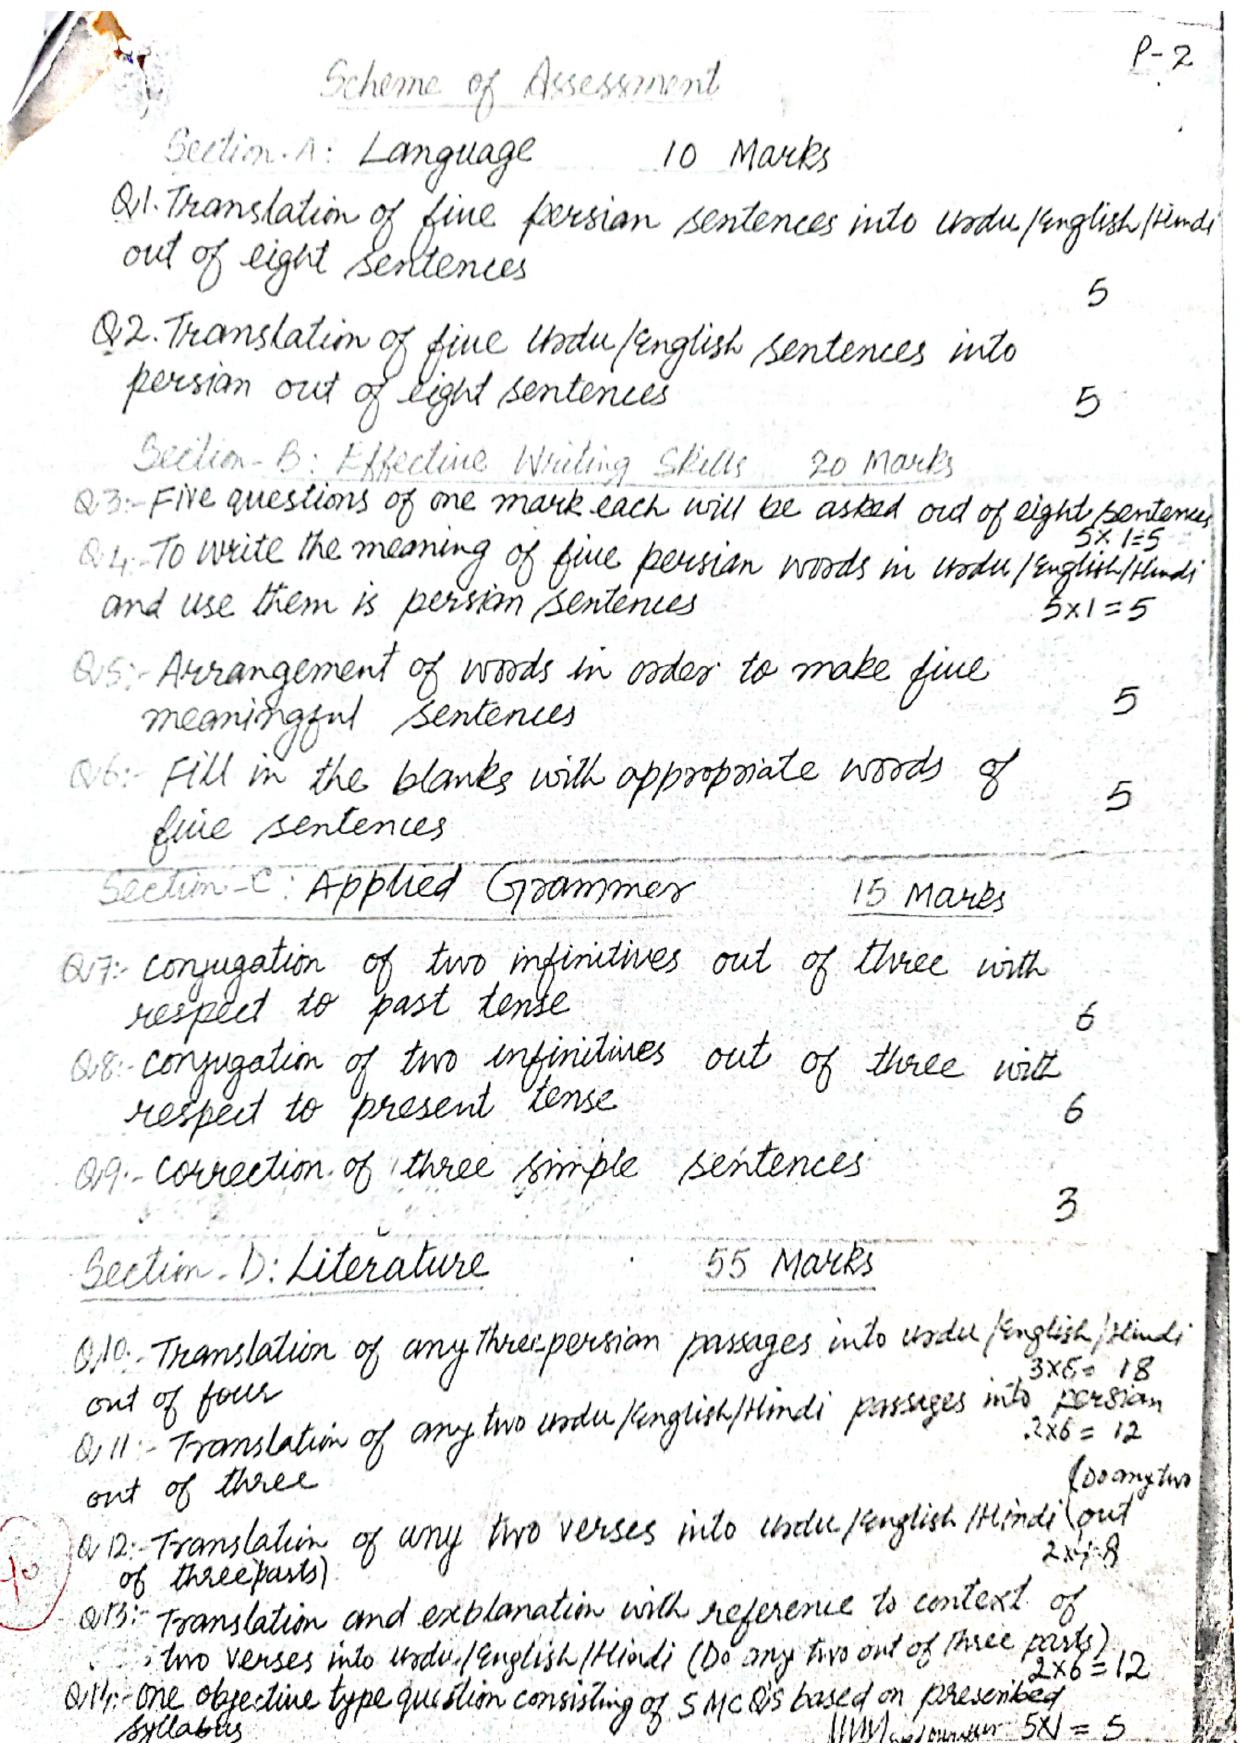 P-2
Scheme of Assessment
Section-A: Language 10 Marks
Q1. Translation of five persian sentences into urdu/English/Hindi
out of eight sentences
5
Q2. Translation of five Urdu/English sentences into
persian out of eight sentences
5
Section-B: Effective Writing Skills 20 Marks
Q3:- Five questions of one mark each will be asked out of eight sentences
5x1=5
Q4:- To write the meaning of five persian words in urdu/English/Hindi
and use them is persian sentences 5x1=5
Q5:- Arrangement of words in order to make five
meaningful sentences 5
Q6:- Fill in the blanks with appropriate words of
five sentences 5
Section-C: Applied Grammer 15 Marks
Q7:- conjugation of two infinitives out of three with
respect to past tense 6
Q8:- conjugation of two infinitives out of three with
respect to present tense 6
Q9:- correction of three simple sentences
3
Section-D: Literature 55 Marks
Q10:- Translation of any three persian passages into urdu/English/Hindi
out of four 3x6= 18
Q11:- Translation of any two urdu/English/Hindi passages into persian
out of three 2x6= 12
Q12:- Translation of any two verses into urdu/English/Hindi (Do any two out
of three parts) 2x4=8
Q13:- Translation and explanation with reference to context of
two verses into urdu/English/Hindi (Do any two out of three parts)
2x6=12
Q14:- One objective type question consisting of 5 MCQ'S based on prescribed
syllabus 5x1=5